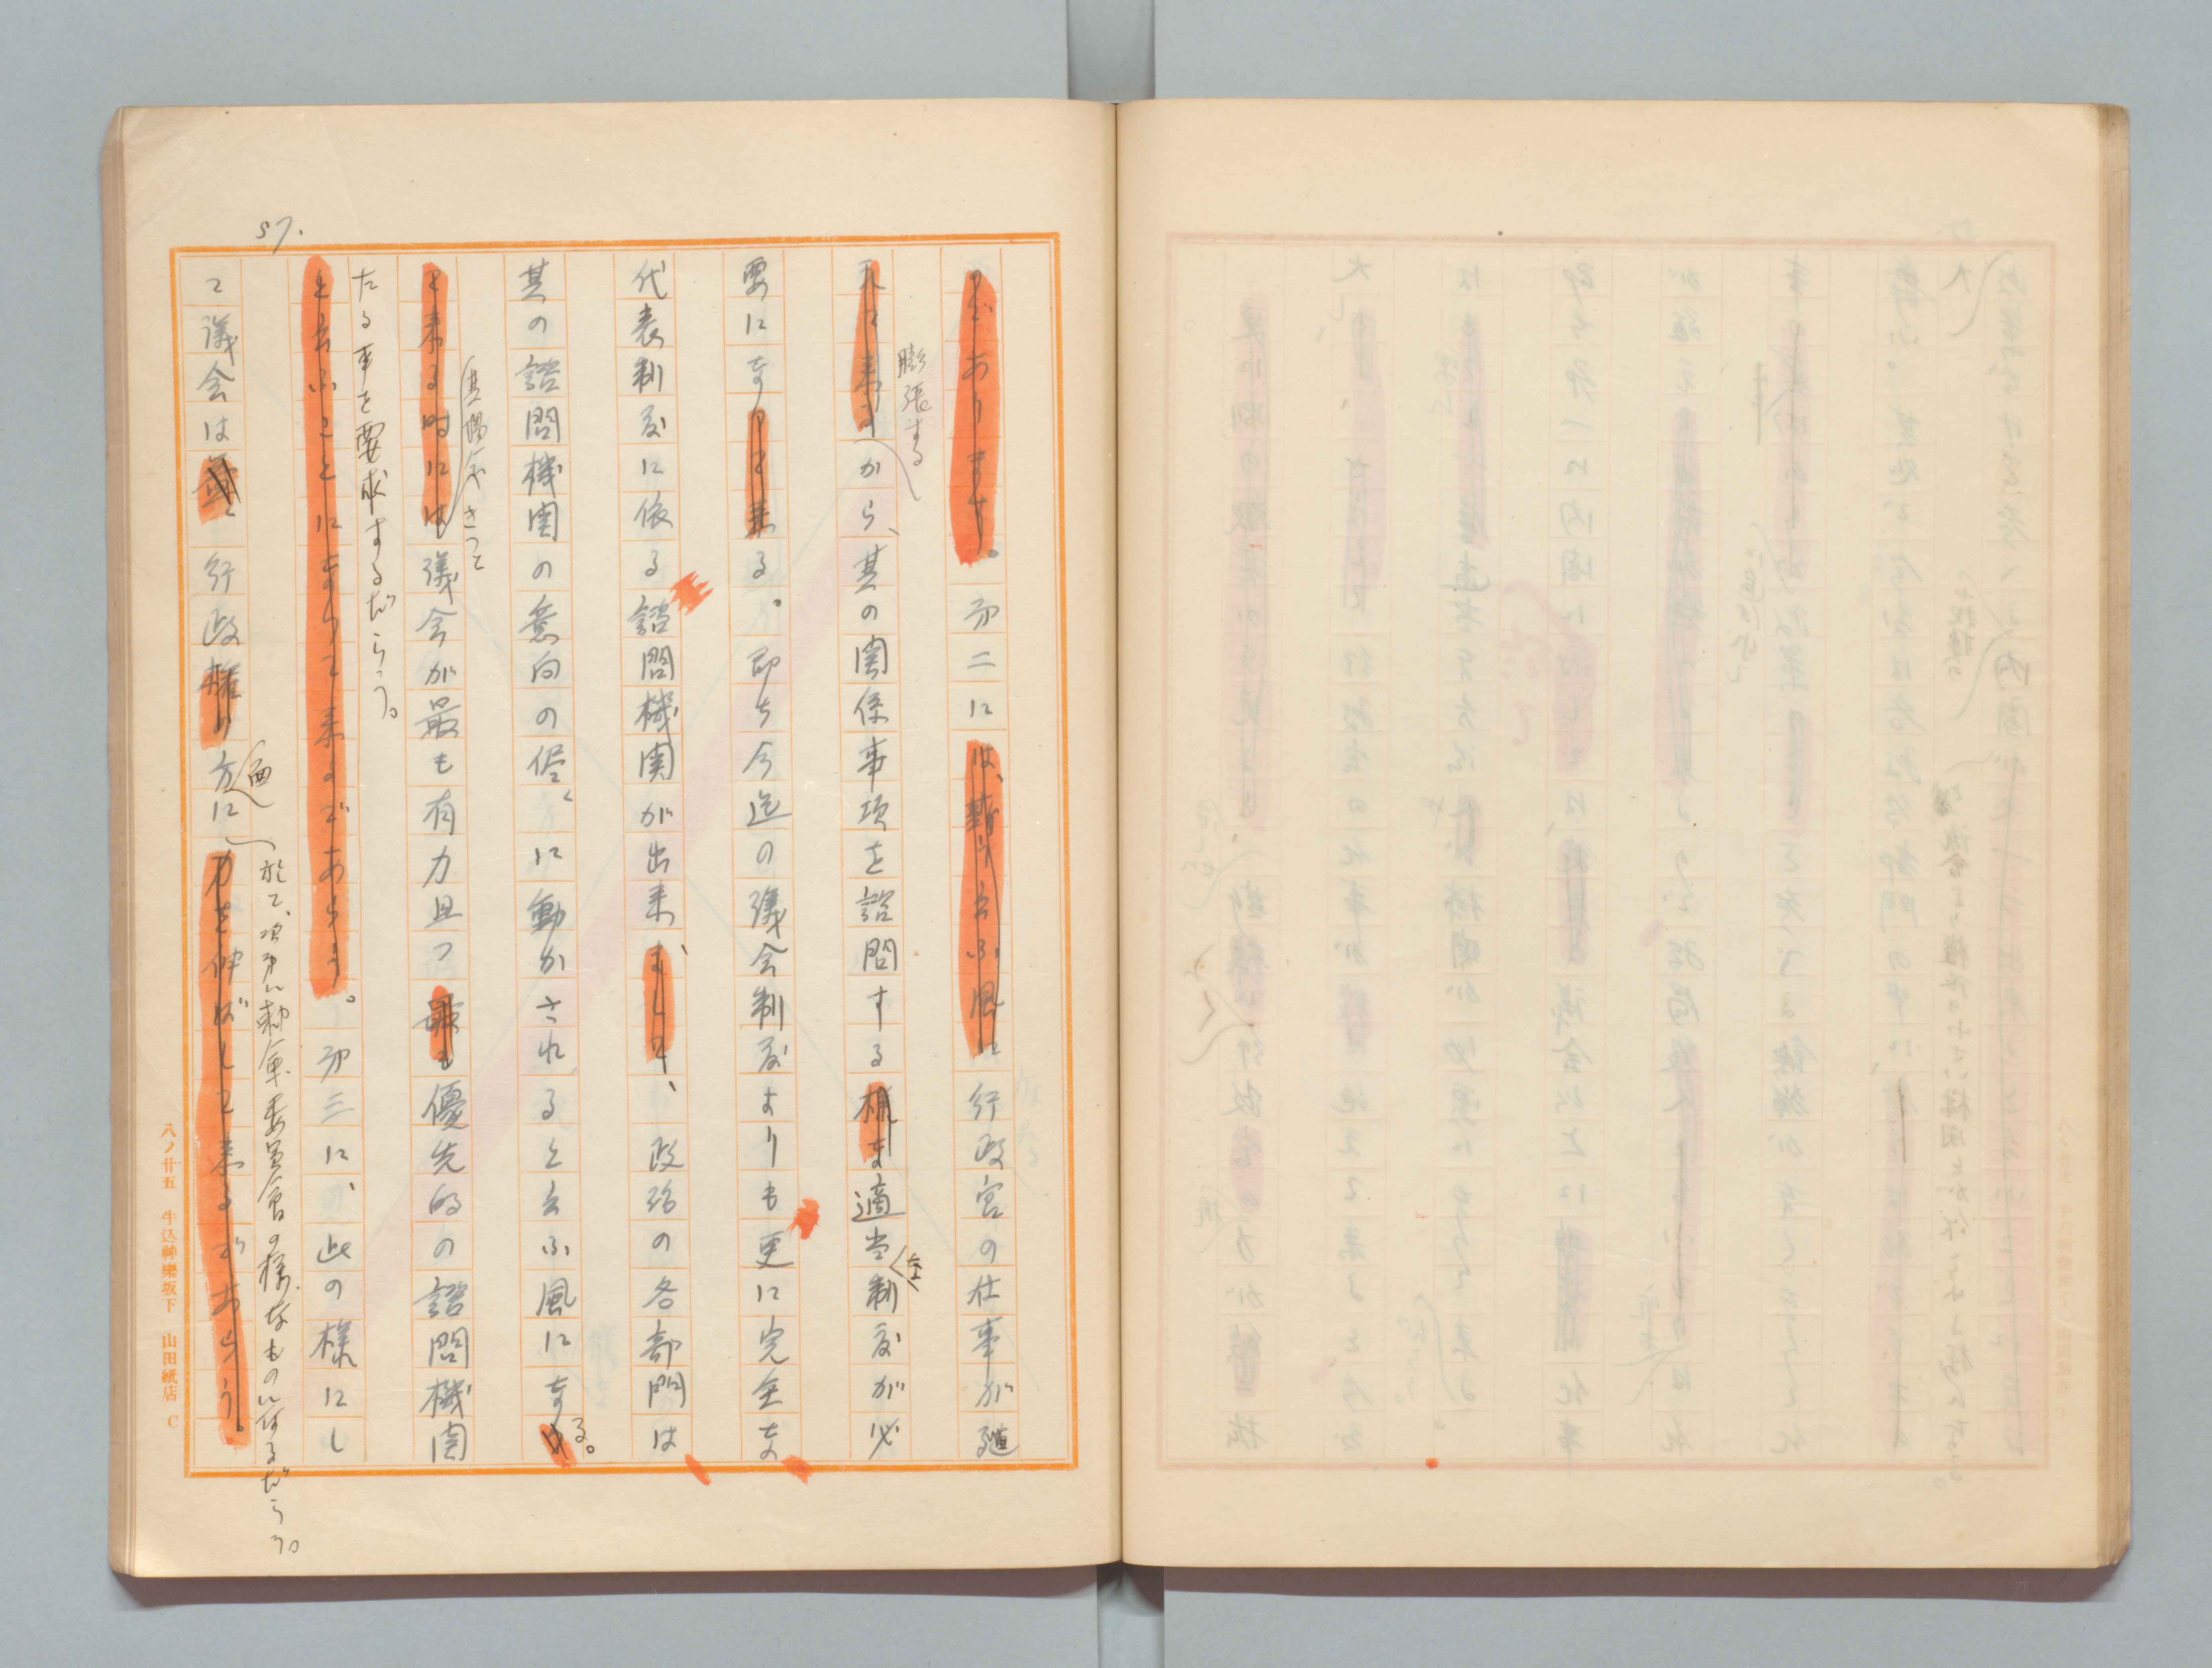 57.
であります。第二には、斯う云ふ風に行政官の仕事が殖
えて来るから、其の関係事項を諮問する様な適当制度が必
膨張する
な
要になりて来る。即ち今迄の議会制度よりも更に完全な
代表制度に依る諮問機関が出来まして、政治の各部門は
其の諮問機関の意向の侭に動かされると云ふ風になる。
と来る時には議会が最も有力且つ最も優先的の諮問機関
其場合さつと
たる事を要求するだらう。
と云ふことになりて来るであらう。第三に、此の様にし
て議会は行政権の方に力を伸ばして来るであらう。
面
於て、次第に勅令委員会の様なものになるだらう。
八ノ廿五 牛込神樂坂下 山田紙店 C